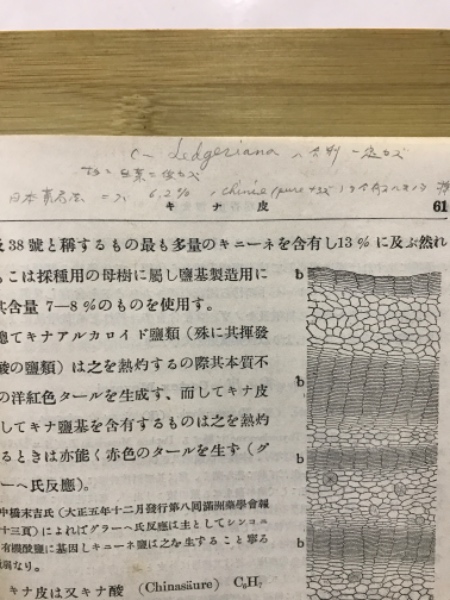 C— Ledgeriana
6,2%
キナ皮 61
38 號と稱するもの最も多量のキニーネを含有し13 % に及ぶ然れ
こは採種用の母樹に屬し鹽基製造用に
含量 7—8 %のものを使用す。
てキナアルカロイド鹽類（殊に共揮發
酸の鹽類）は之を熱灼するの際其本質不
の洋紅色タールを生成す、而してキナ皮
してキナ鹽基を含有するものは之を熱灼
るときは亦能く赤色のタールを生す（グ
ーヘ氏反應）。
中橋末吉氏（大正五年十二月發行第八回滿洲藥學會報
十三頁）によればグラーヘ氏反應は主としてシンコニ
有機酸鹽に基因しキニーネ鹽は之を生すること寧ろ
なり。
キナ皮は又キナ酸 (Chinasäure) C₆H₇
b
b
b
b